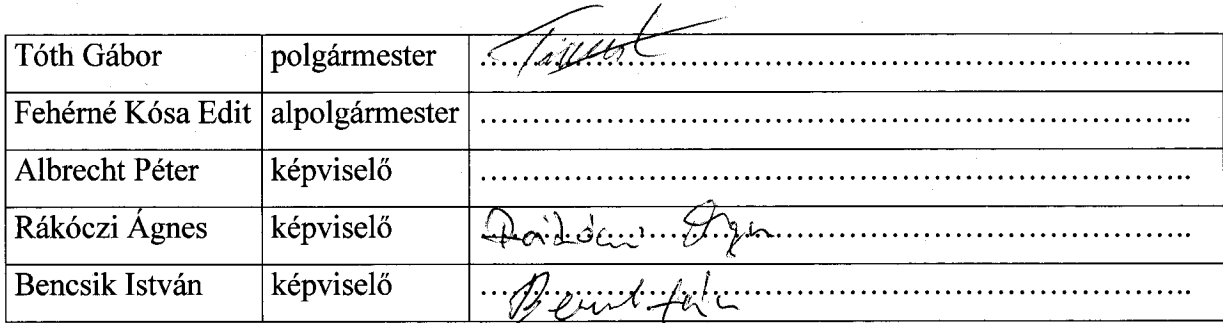 Tóth Gábor polgármester ................................................................
Fehérné Kósa Edit alpolgármester ................................................................
Albrecht Péter képviselő ................................................................
Rákóczi Ágnes képviselő Rákóczi Ágn................................................................
Bencsik István képviselő ................................................................